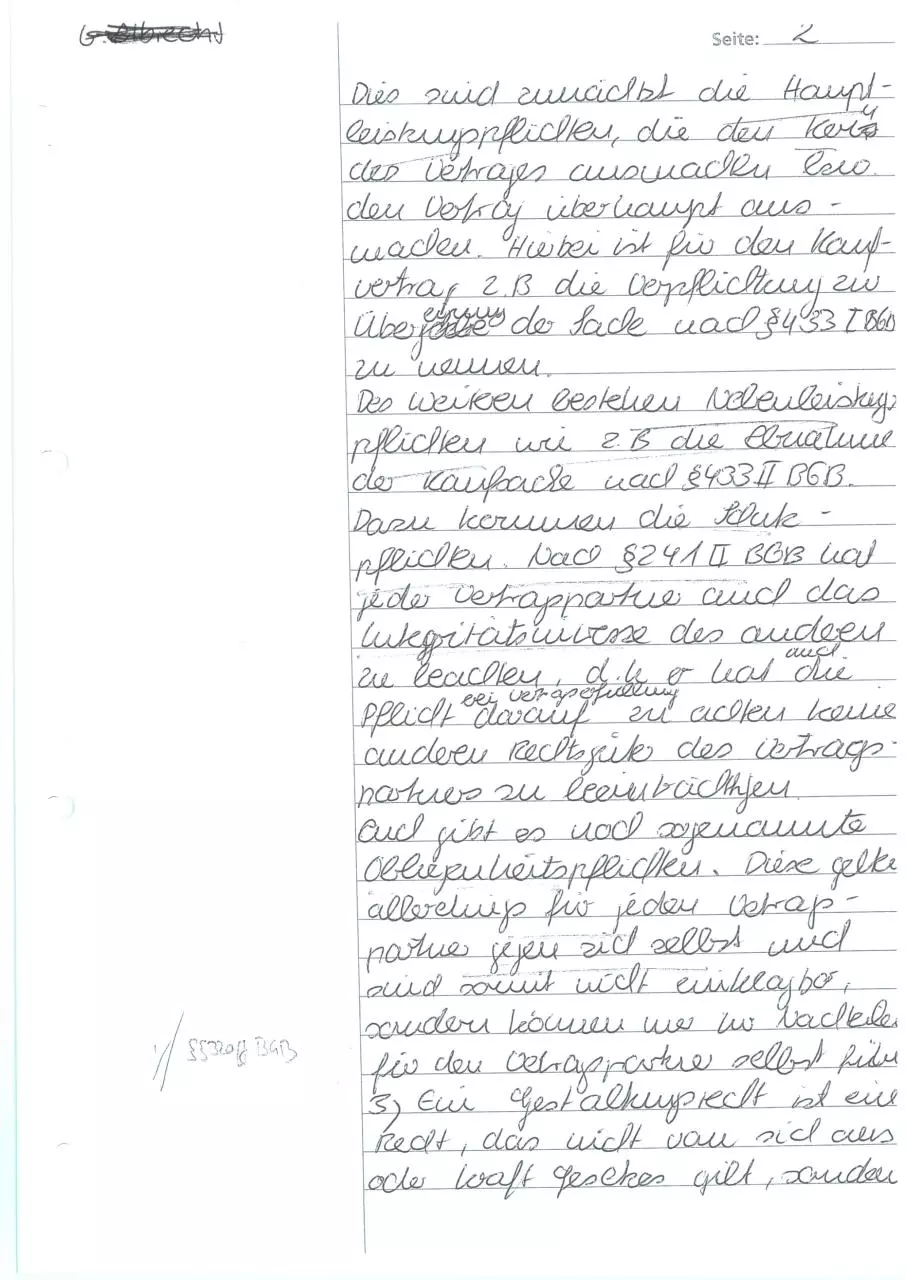 Seite: 2
Dies sind zunächst die Haupt-
leistungspflichten, die den Kern
des Vertrages ausmachen bzw.
den Vertrag überhaupt aus-
machen. Hierbei ist für den Kauf-
vertrag z.B die Verpflichtung zur
Übereignung der Sache nach § 433 I BGB
zu nennen.
Des weiteren bestehen Nebenleistungs
pflichten wie z.B die Abnahme
der Kaufsache nach § 433 II BGB.
Dazu kommen die Schutz-
pflichten. Nach § 241 II BGB hat
jeder Vertragspartner auch das
Integritätsinteresse des anderen
zu beachten, d.h er hat auch die
Pflicht bei Vertragserfüllung darauf zu achten keine
anderen Rechtsgüter des Vertrags-
partners zu beeinträchtigen.
Auch gibt es noch sogenannte
Obliegenheitspflichten. Diese gelten
allerdings für jeden Vertrags-
partner gegen sich selbst und
sind somit nicht einklagbar,
sondern können nur zu Nachteilen
für den Vertragspartner selbst führen
§§ 320 ff BGB
3) Ein Gestaltungsrecht ist ein
Recht, das nicht von sich aus
oder kraft Gesetzes gilt, sondern